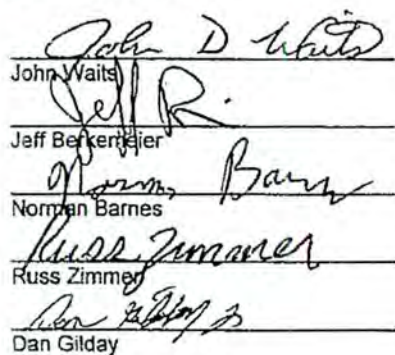 John D Waits
John Waits
Jeff
Jeff Berkemeier
Norman Barnes
Norman Barnes
Russ Zimmer
Russ Zimmer
Dan Gilday Jr
Dan Gilday